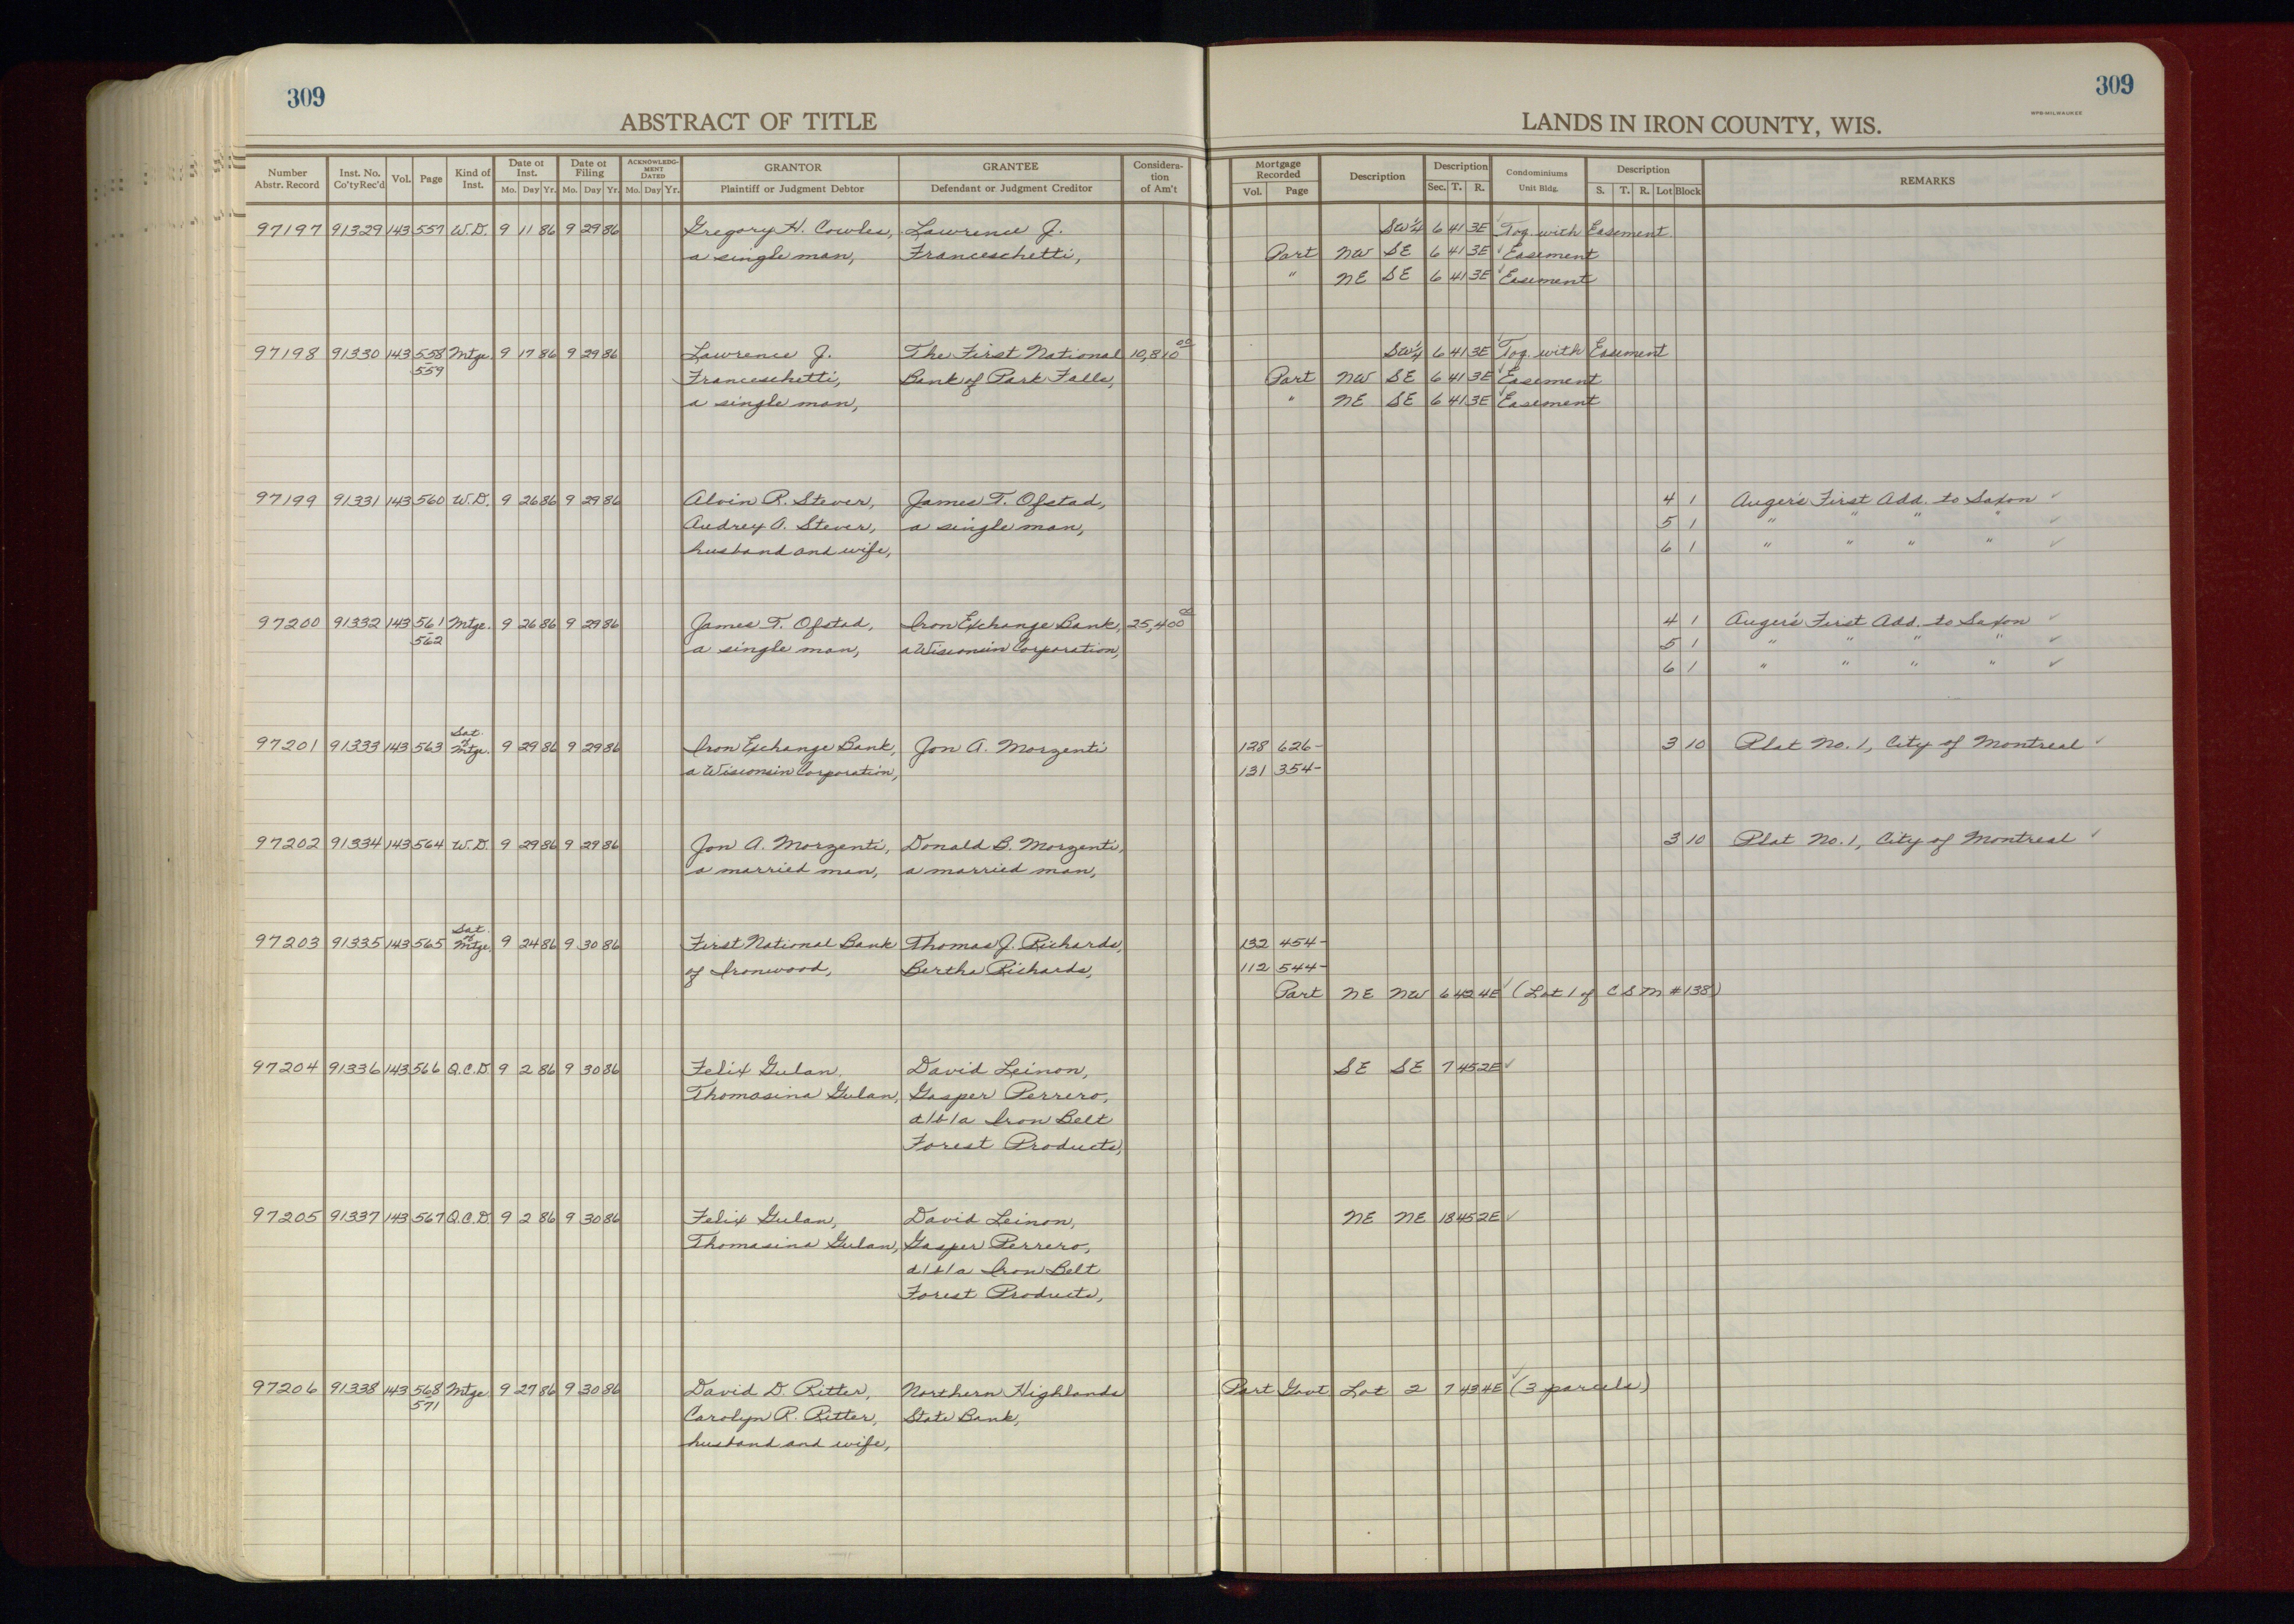 309
309
ABSTRACT OF TITLE
LANDS IN IRON COUNTY, WIS.
WPB-MILWAUKEE
Number Abstr. Record Inst. No. Co'ty Rec'd Vol. Page Kind of Inst. Date of Inst. Mo. Day Yr. Date of Filing Mo. Day Yr. ACKNOWLEDGMENT DATED Mo. Day Yr. GRANTOR Plaintiff or Judgment Debtor GRANTEE Defendant or Judgment Creditor Consideration of Am't Mortgage Recorded Vol. Page Description Description Sec. T. R. Condominiums Unit Bldg. Description S. T. R. Lot Block REMARKS
97197 91329 143 557 W.D. 9 11 86 9 29 86 Gregory H. Cowles, Lawrence J. SW¼ 6 41 3E Tog. with Easement
a single man, Franceschetti, Part NW SE 6 41 3E Easement
" NE SE 6 41 3E Easement
97198 91330 143 558 Mtge. 9 17 86 9 29 86 Lawrence J. The First National 10,810 00 SW¼ 6 41 3E Tog. with Easement
559 Franceschetti, Bank of Park Falls, Part NW SE 6 41 3E Easement
a single man, " NE SE 6 41 3E Easement
97199 91331 143 560 W.D. 9 26 86 9 29 86 Alvin R. Stever, James T. Ofstad, 4 1 Auger's First Add. to Saxon ✓
Audrey A. Stever, a single man, 5 1 " " " " ✓
husband and wife, 6 1 " " " " ✓
97200 91332 143 561 Mtge. 9 26 86 9 29 86 James T. Ofstad, Iron Exchange Bank, 25,400 00 4 1 Auger's First Add. to Saxon ✓
562 a single man, a Wisconsin Corporation, 5 1 " " " " ✓
6 1 " " " " ✓
97201 91333 143 563 Sat. of Mtge. 9 29 86 9 29 86 Iron Exchange Bank, Jon A. Morzenti 128 626- 3 10 Plat No. 1, City of Montreal ✓
a Wisconsin Corporation, 131 354-
97202 91334 143 564 W.D. 9 29 86 9 29 86 Jon A. Morzenti, Donald B. Morzenti, 3 10 Plat No. 1, City of Montreal ✓
a married man, a married man,
97203 91335 143 565 Sat. of Mtge. 9 24 86 9 30 86 First National Bank Thomas J. Richards, 132 454-
of Ironwood, Bertha Richards, 112 544-
Part NE NW 6 42 4E ✓ (Lot 1 of CSM #138)
97204 91336 143 566 Q.C.D. 9 2 86 9 30 86 Felix Gulan, David Leinon, SE SE 7 45 2E ✓
Thomasina Gulan, Gasper Perrero,
d/b/a Iron Belt
Forest Products,
97205 91337 143 567 Q.C.D. 9 2 86 9 30 86 Felix Gulan, David Leinon, NE NE 18 45 2E ✓
Thomasina Gulan, Gasper Perrero,
d/b/a Iron Belt
Forest Products,
97206 91338 143 568 Mtge 9 27 86 9 30 86 David D. Ritter, Northern Highlands Part Govt Lot 2 7 43 4E ✓ (3 parcels)
571 Carolyn R. Ritter, State Bank,
husband and wife,